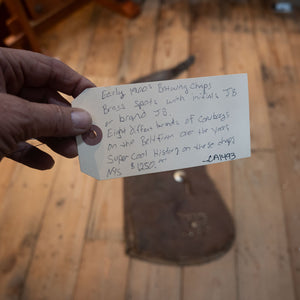 Early 1900s Batwing Chaps
Brass spots with initials JB
or brand JB.
Eight different brands of Cowboys
on the Belt from over the years
Super Cool History on these chaps
$1250.00